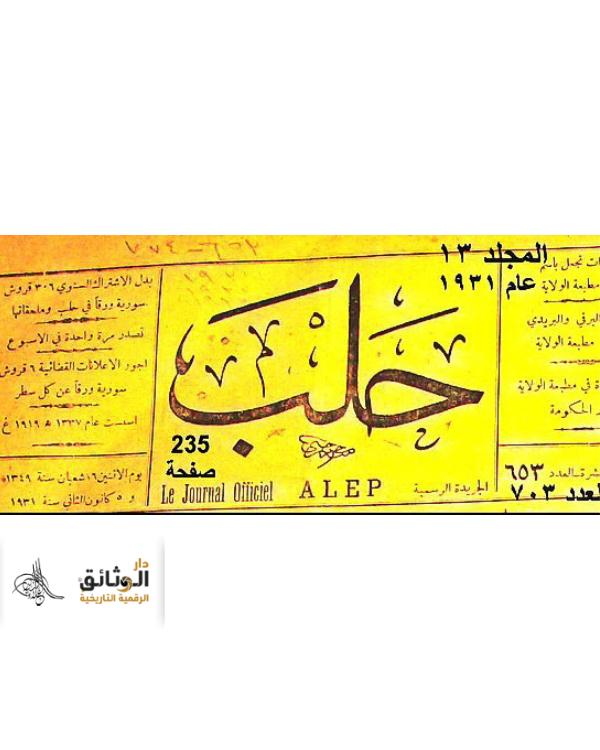 ٦٥٢ - ٧٧٤
المجلد ١٣
عام ١٩٣١
تجمل باسم
مطبعة الولاية
البرقي والبريدي
مطبعة الولاية
في مطبعة الولاية
الحكومة
العدد ٦٥٣
العدد ٧٠٣
حلب
الجريدة الرسمية
ALEP
Le Journal Officiel
235
صفحة
بدل الاشتراك السنوي ٣٠٦ قروش
سورية ورقاً في حلب وملحقاتها
تصدر مرة واحدة في الاسبوع
اجور الاعلانات القضائية ٦ قروش
سورية ورقاً عن كل سطر
اسست عام ١٣٣٧ ه ١٩١٩ غ
يوم الاثنين ١٦ شعبان سنة ١٣٤٩
و ٥ كانون الثاني سنة ١٩٣١
دار
الوثائق
الرقمية التاريخية